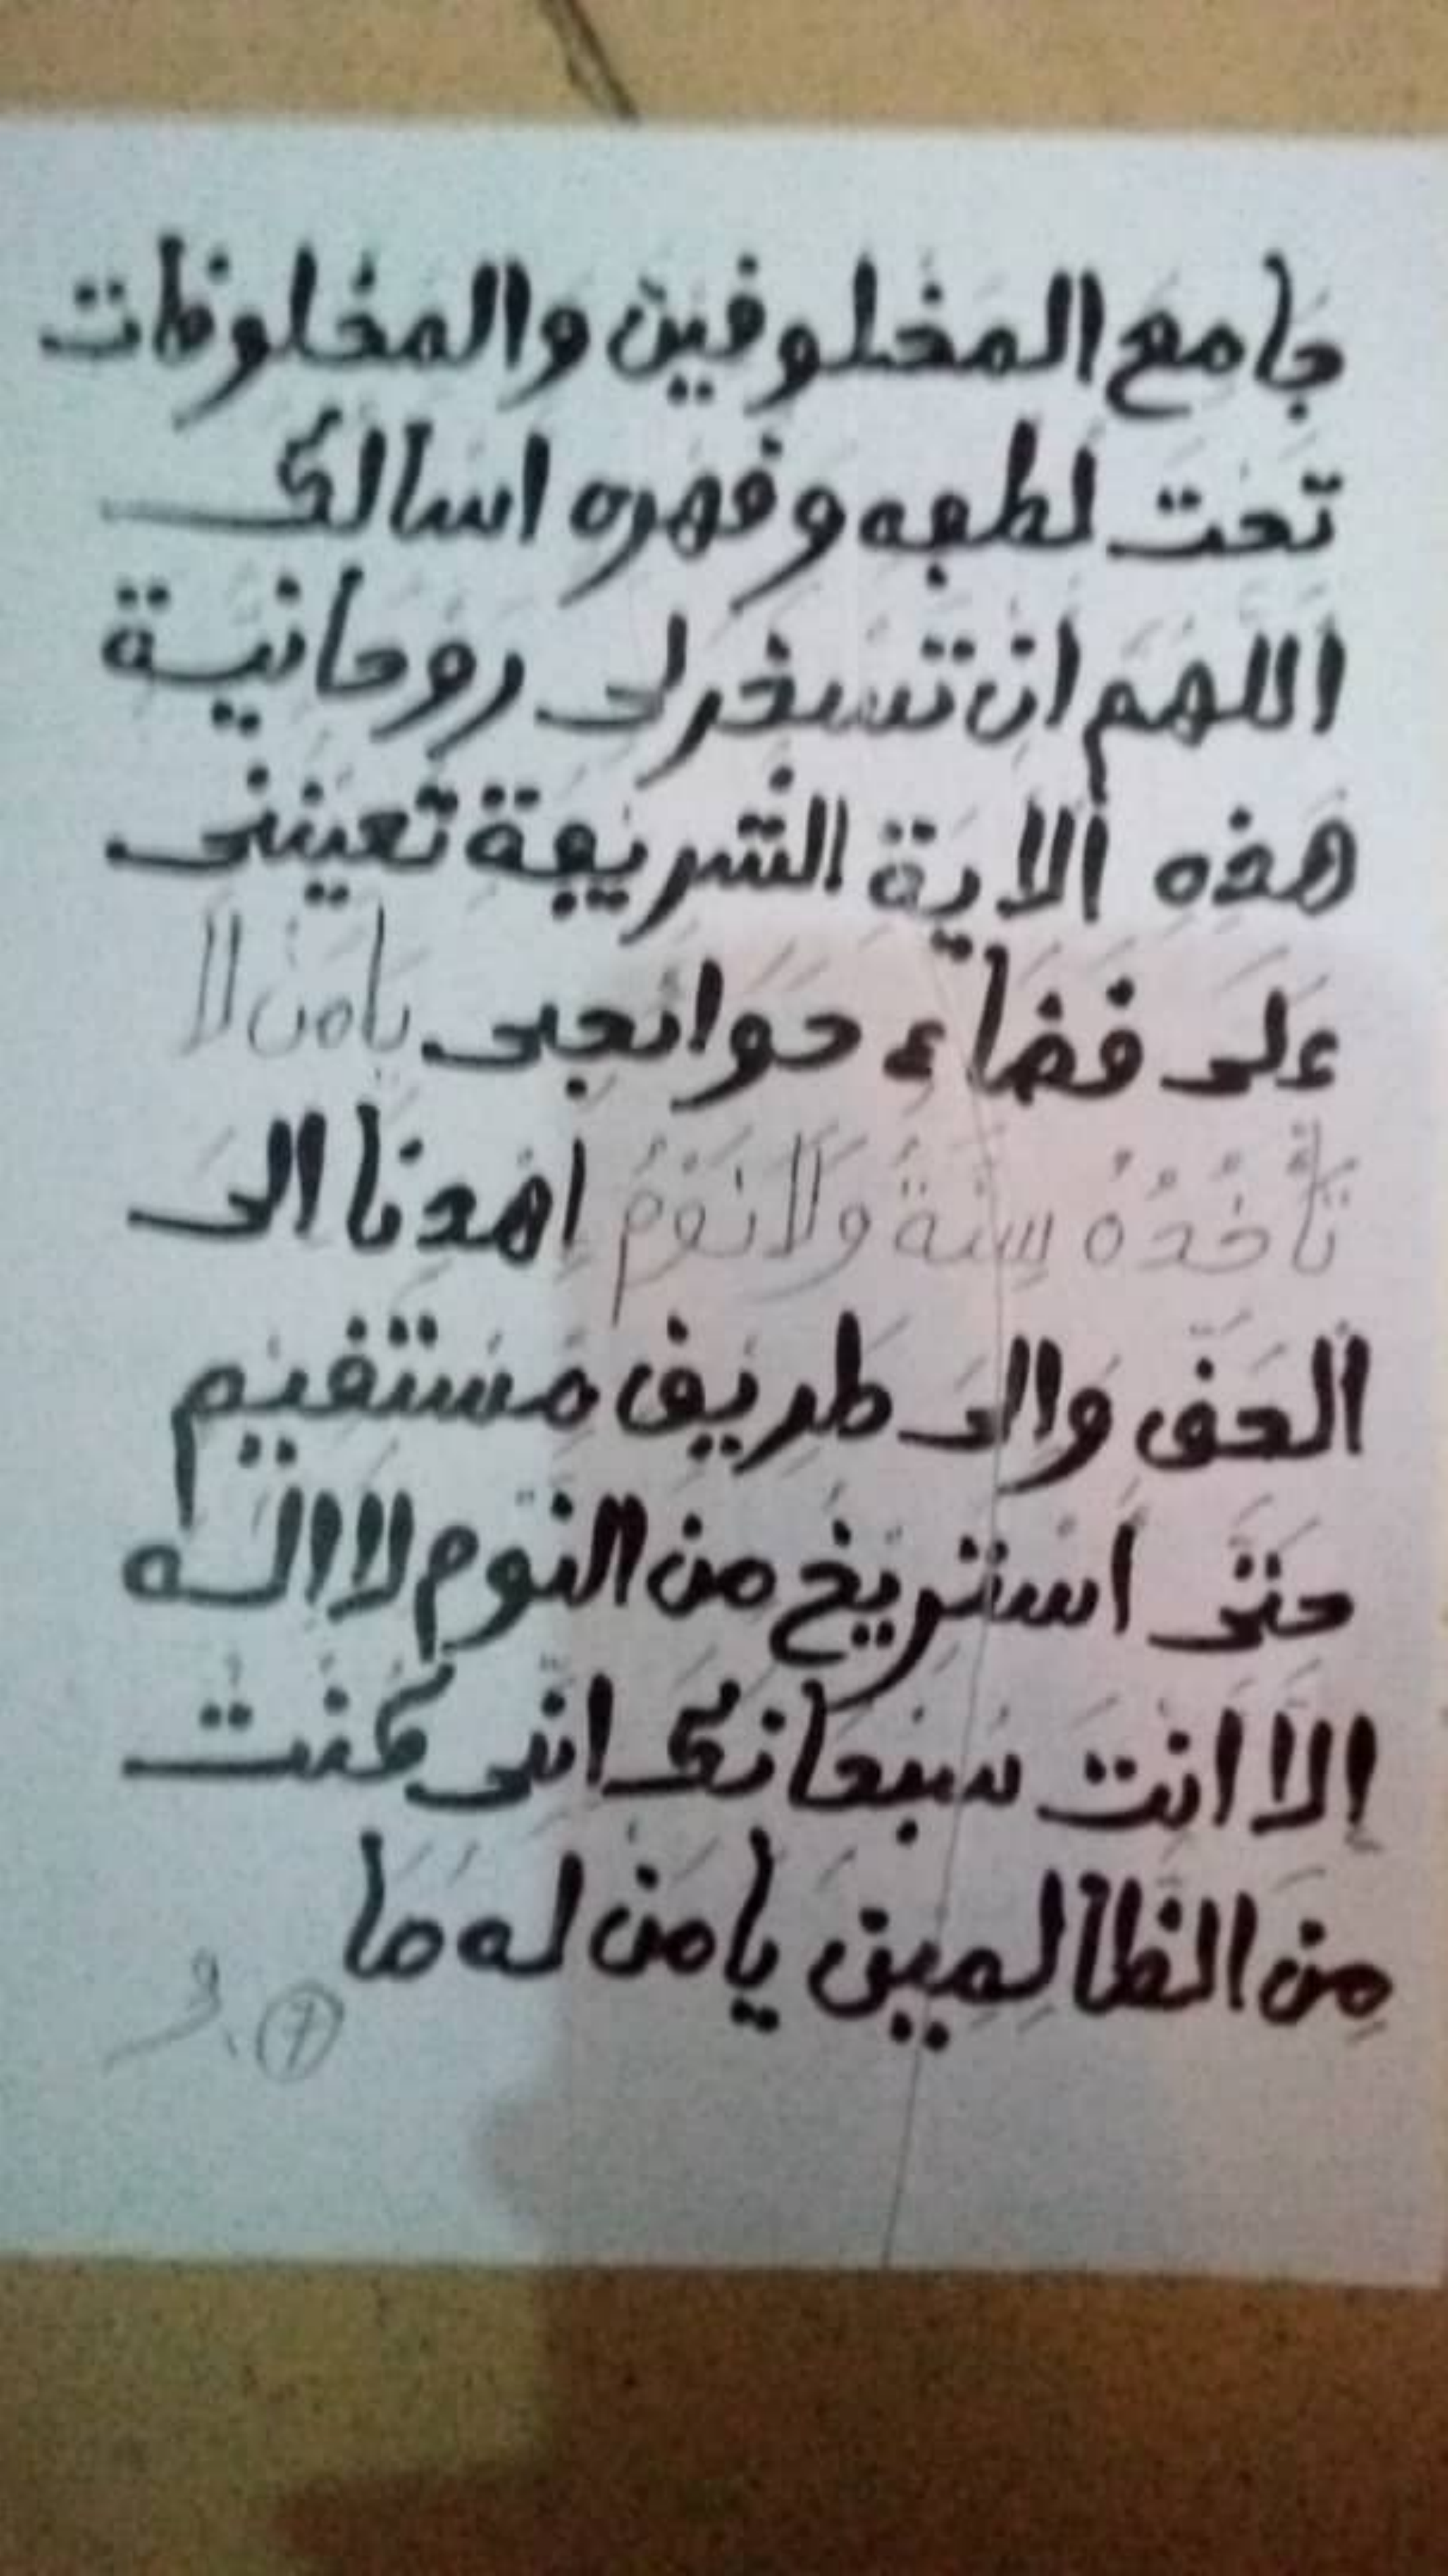 جامع المخلوفين والمخلوفات
تحت لطبه وفهره اسالك
اللهم ان تسخر لى روحانية
هذه الاية الشريبة تعيننى
على فضاء حوائجى يا من لا
تأخذه سنة ولا نوم اهدنا الى
الحف والى طريف مستفيم
حتى استريح من النوم لا اله
إلا انت سبحانك انى كنت
من الظالمين يا من له ما